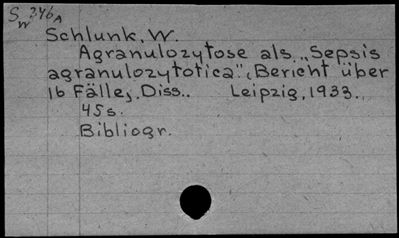 Sw 346A
Schlunk, W.
Agranulozytose als „Sepsis
agranulozytotica". (Bericht über
16 Fälle). Diss.. Leipzig, 1933.
45s.
Bibliogr.